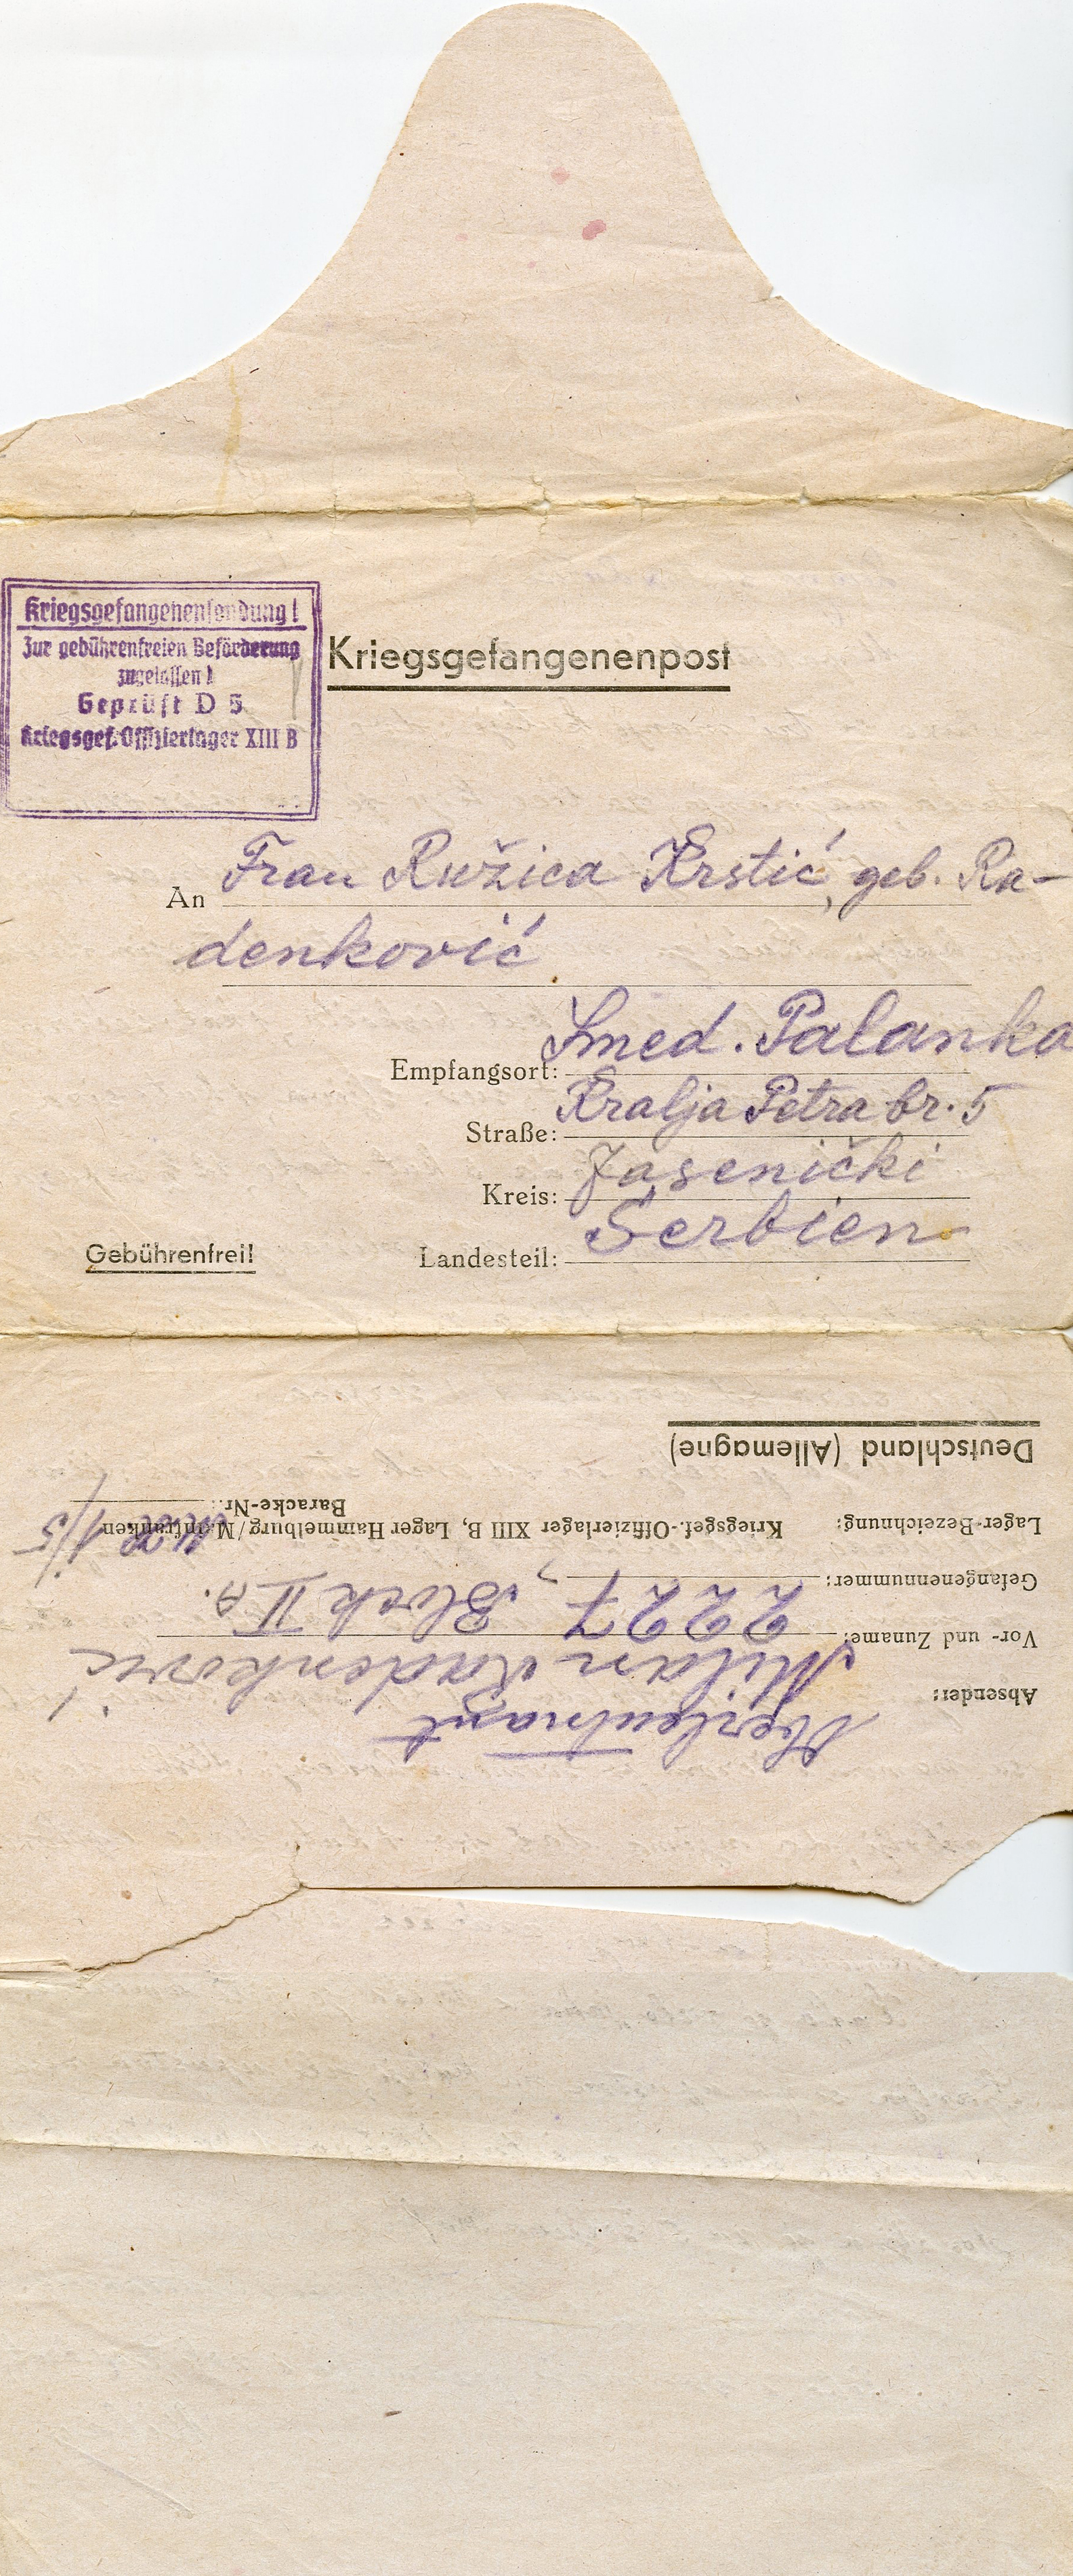 Kriegsgefangenensendung!
Zur gebührenfreien Beförderung
zugelassen!
Geprüft D 5
Kriegsgef. Offizierlager XIII B
Kriegsgefangenenpost
An Frau Ružica Krstić, geb. Ra-
denković
Empfangsort: Smed. Palanka
Straße: Kralja Petra br. 5
Kreis: Jasenički
Landesteil: Serbien
Gebührenfrei!
Absender: Oberleutnant
Vor- und Zuname: Milan Radenković
Gefangenennummer: 2227, Block II
Lager-Bezeichnung: Kriegsgef.-Offizierlager XIII B, Lager Hammelburg/Mainfranken
Baracke-Nr.: 1/5
Deutschland (Allemagne)